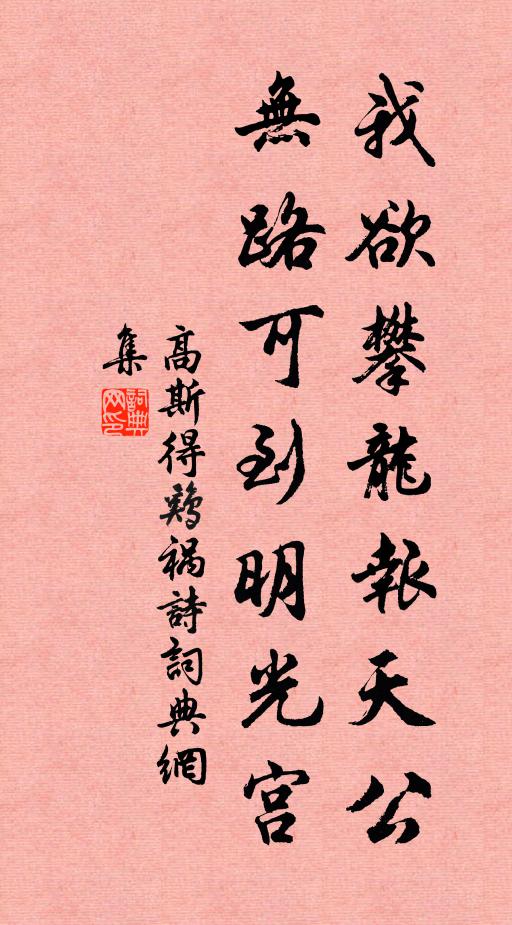 我欲攀龍報天公
無路可到明光宫
高斯得鷄禍詩詞典網
集
詞典网印